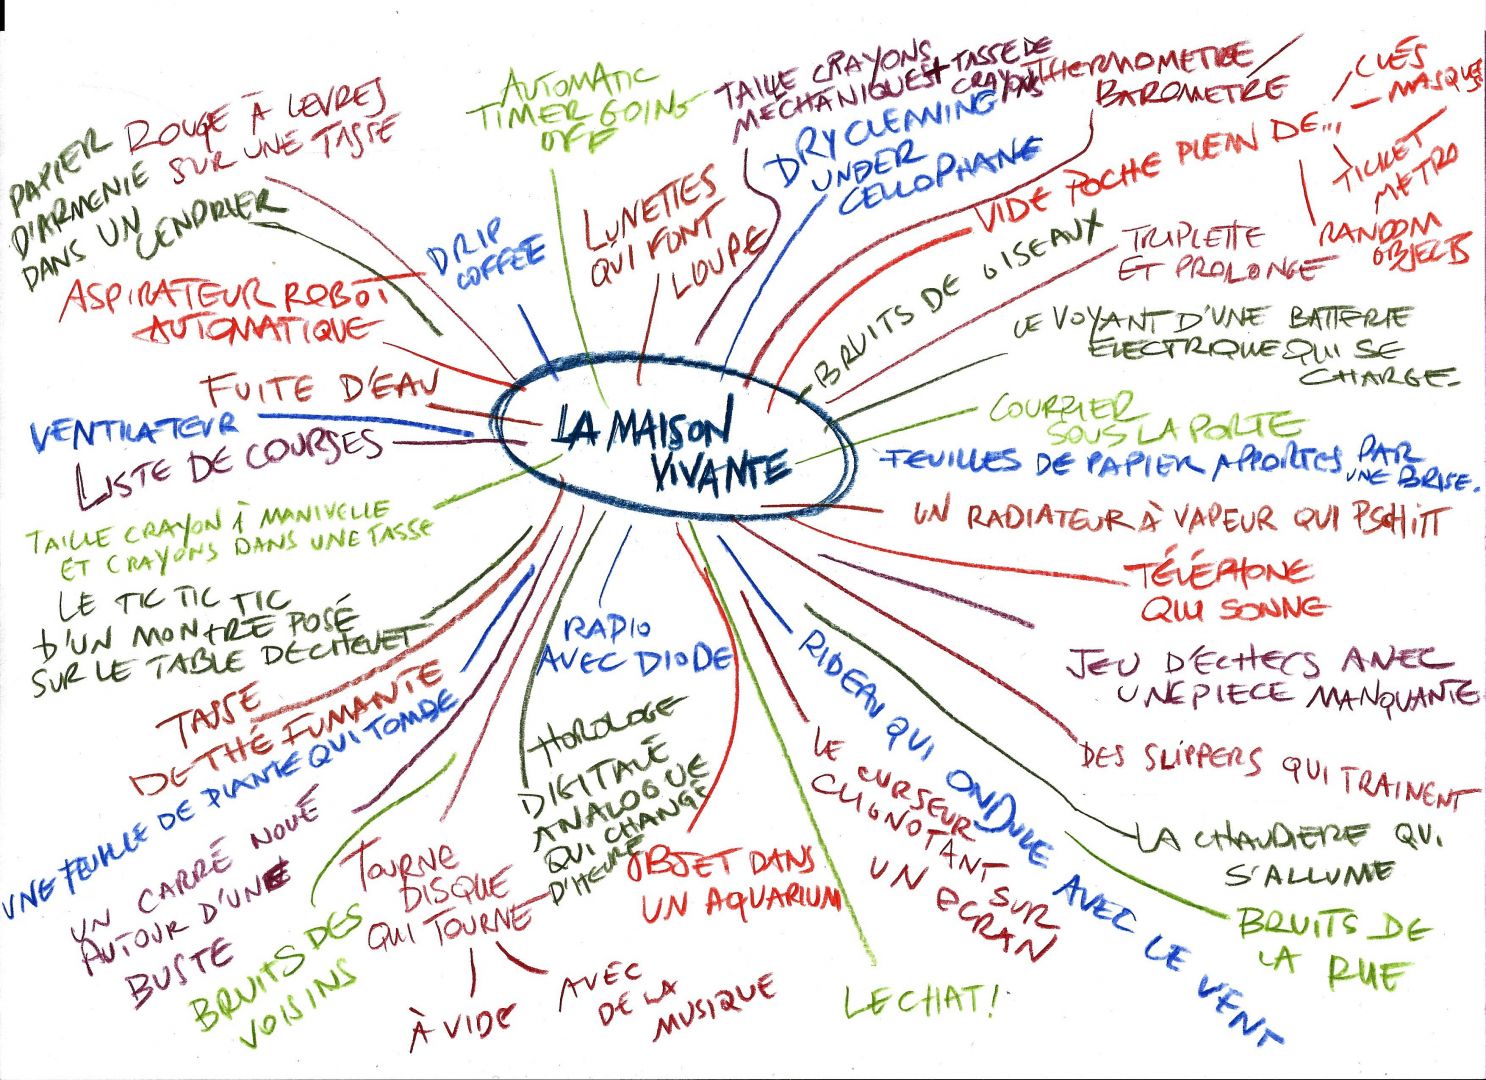 LA MAISON
VIVANTE
PAPIER
D'ARMENIE
DANS UN
CENDRIER
ROUGE À LEVRES
SUR UNE TASSE
AUTOMATIC
TIMER GOING
OFF
DRIP
COFFEE
LUNETTES
QUI FONT
LOUPE
TAILLE CRAYONS
MECHANIQUES + TASSE DE
CRAYONS
DRY CLEANING
UNDER
CELLOPHANE
THERMOMETRE
BAROMETRE
VIDE POCHE PLEIN DE...
CLÉS
MASQUES
TICKET
METRO
RANDOM
OBJECTS
BRUITS DE OISEAUX
TRIPLETTE
ET PROLONGE
LE VOYANT D'UNE BATTERIE
ELECTRIQUE QUI SE
CHARGE
COURRIER
SOUS LA PORTE
FEUILLES DE PAPIER APPORTÉS PAR
UNE BRISE.
UN RADIATEUR À VAPEUR QUI PSCHITT
TÉLÉPHONE
QUI SONNE
JEU D'ECHECS AVEC
UNE PIECE MANQUANTE
DES SLIPPERS QUI TRAINENT
LA CHAUDIERE QUI
S'ALLUME
BRUITS DE
LA RUE
RIDEAU QUI ONDULE AVEC LE VENT
LE CURSEUR
CLIGNOTANT SUR
UN ECRAN
LE CHAT!
OBJET DANS
UN AQUARIUM
RADIO
AVEC DIODE
HOROLOGE
DIGITALE
ANALOGUE
QUI CHANGE
D'HEURE
TOURNE
DISQUE
QUI TOURNE
À VIDE
AVEC
DE LA
MUSIQUE
BRUITS DES
VOISINS
UN CARRÉ NOUÉ
AUTOUR D'UNE
BUSTE
UNE FEUILLE DE PLANTE QUI TOMBE
TASSE
DE THÉ FUMANTE
LE TIC TIC TIC
D'UN MONTRE POSÉ
SUR LE TABLE DE CHEVET
TAILLE CRAYON À MANIVELLE
ET CRAYONS DANS UNE TASSE
LISTE DE COURSES
VENTILATEUR
FUITE D'EAU
ASPIRATEUR ROBOT
AUTOMATIQUE